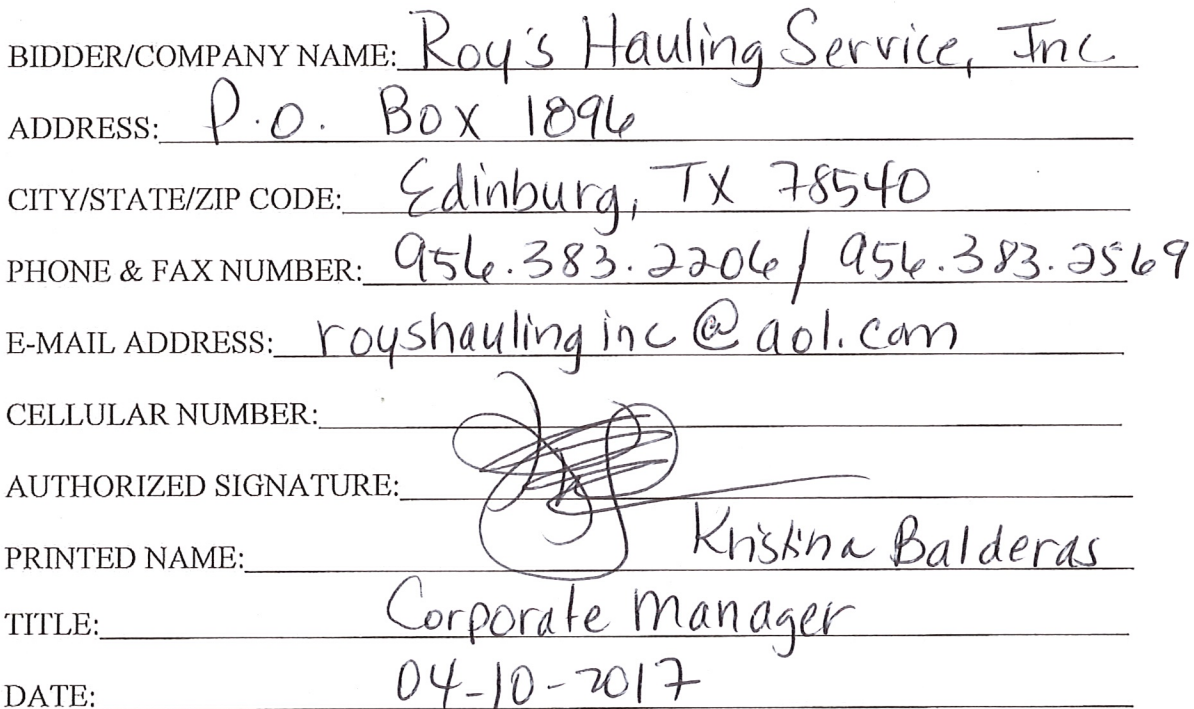 BIDDER/COMPANY NAME: Roy's Hauling Service, Inc
ADDRESS: P.O. Box 1896
CITY/STATE/ZIP CODE: Edinburg, TX 78540
PHONE & FAX NUMBER: 956.383.2206 / 956.383.2569
E-MAIL ADDRESS: royshaulinginc@aol.com
CELLULAR NUMBER:
AUTHORIZED SIGNATURE:
PRINTED NAME: Kristina Balderas
TITLE: Corporate Manager
DATE: 04-10-2017